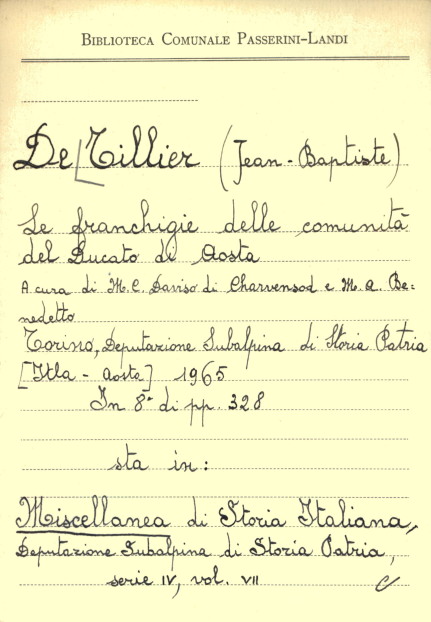 BIBLIOTECA COMUNALE PASSERINI-LANDI
De Tillier (Jean-Baptiste)
Le franchigie delle comunità
del Ducato di Aosta
A cura di M.C. Daviso di Charvensod e M.A. Be=
nedetto
Torino, Deputazione Subalpina di Storia Patria
[Itla - Aosta] 1965
In 8° di pp. 328
sta in:
Miscellanea di Storia Italiana,
Deputazione Subalpina di Storia Patria,
serie IV, vol. VII